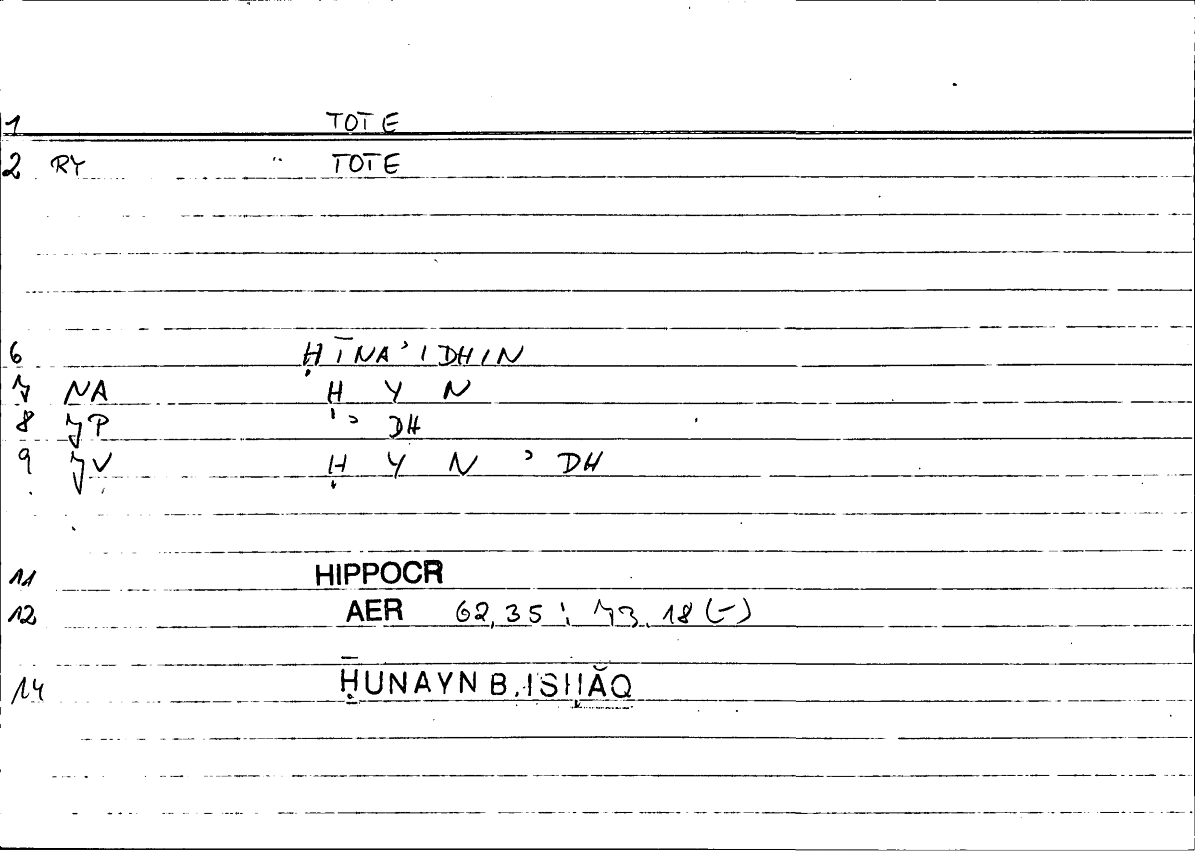 1 TOTE
2 RY TOTE
6 ḤĪNA'IDHIN
7 NA Ḥ Y N
8 JP ' DH
9 JV Ḥ Y N ' DH
11 HIPPOCR
12 AER 62,35; 73,18 (-)
14 ḤUNAYN B. ISḤĀQ